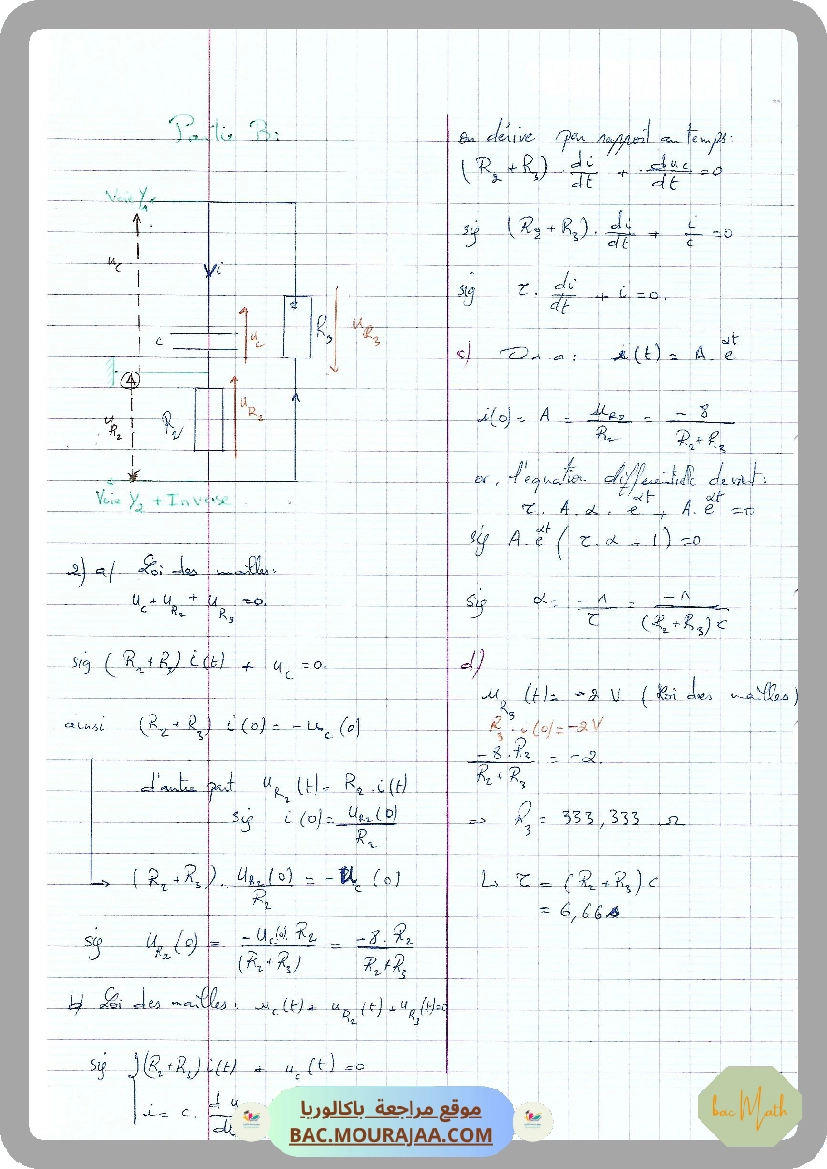 Partie B:
Voie Y1
uc
i
c
uc
R3
uR3
uR2
R2
uR2
Voie Y2 + Inverse
2) a/ Loi des mailles:
uc + uR2 + uR3 = 0.
sig (R2 + R3) i(t) + uc = 0.
ainsi (R2 + R3) i(0) = -uc(0)
d'autre part uR2(t) = R2 . i(t)
sig i(0) = uR2(0) / R2
→ (R2 + R3) . uR2(0) / R2 = -uc(0)
sig uR2(0) = -uc(0) . R2 / (R2 + R3) = -8 . R2 / R2 + R3
b/ Loi des mailles: uc(t) + uR2(t) + uR3(t) = 0
sig (R2 + R3) i(t) + uc(t) = 0
i = c . du / dt
on dérive par rapport au temps:
(R2 + R3) . di/dt + duc/dt = 0
sig (R2 + R3) . di/dt + i/c = 0
sig τ . di/dt + i = 0.
c) On a: i(t) = A . e^αt
i(0) = A = uR2 / R2 = -8 / R2 + R3
or, l'équation différentielle devient:
τ . A . α . e^αt + A . e^αt = 0
sig A . e^αt ( τ . α + 1) = 0
sig α = -1/τ = -1 / (R2 + R3) c
d)
uR3(t) = -2 V (Loi des mailles)
R3 . i(0) = -2V
-8 . R2 / R2 + R3 = -2.
=> R3 = 333,333 Ω
↳ τ = (R2 + R3) c
= 6,66 s
موقع مراجعة باكالوريا
BAC.MOURAJAA.COM
bac Math